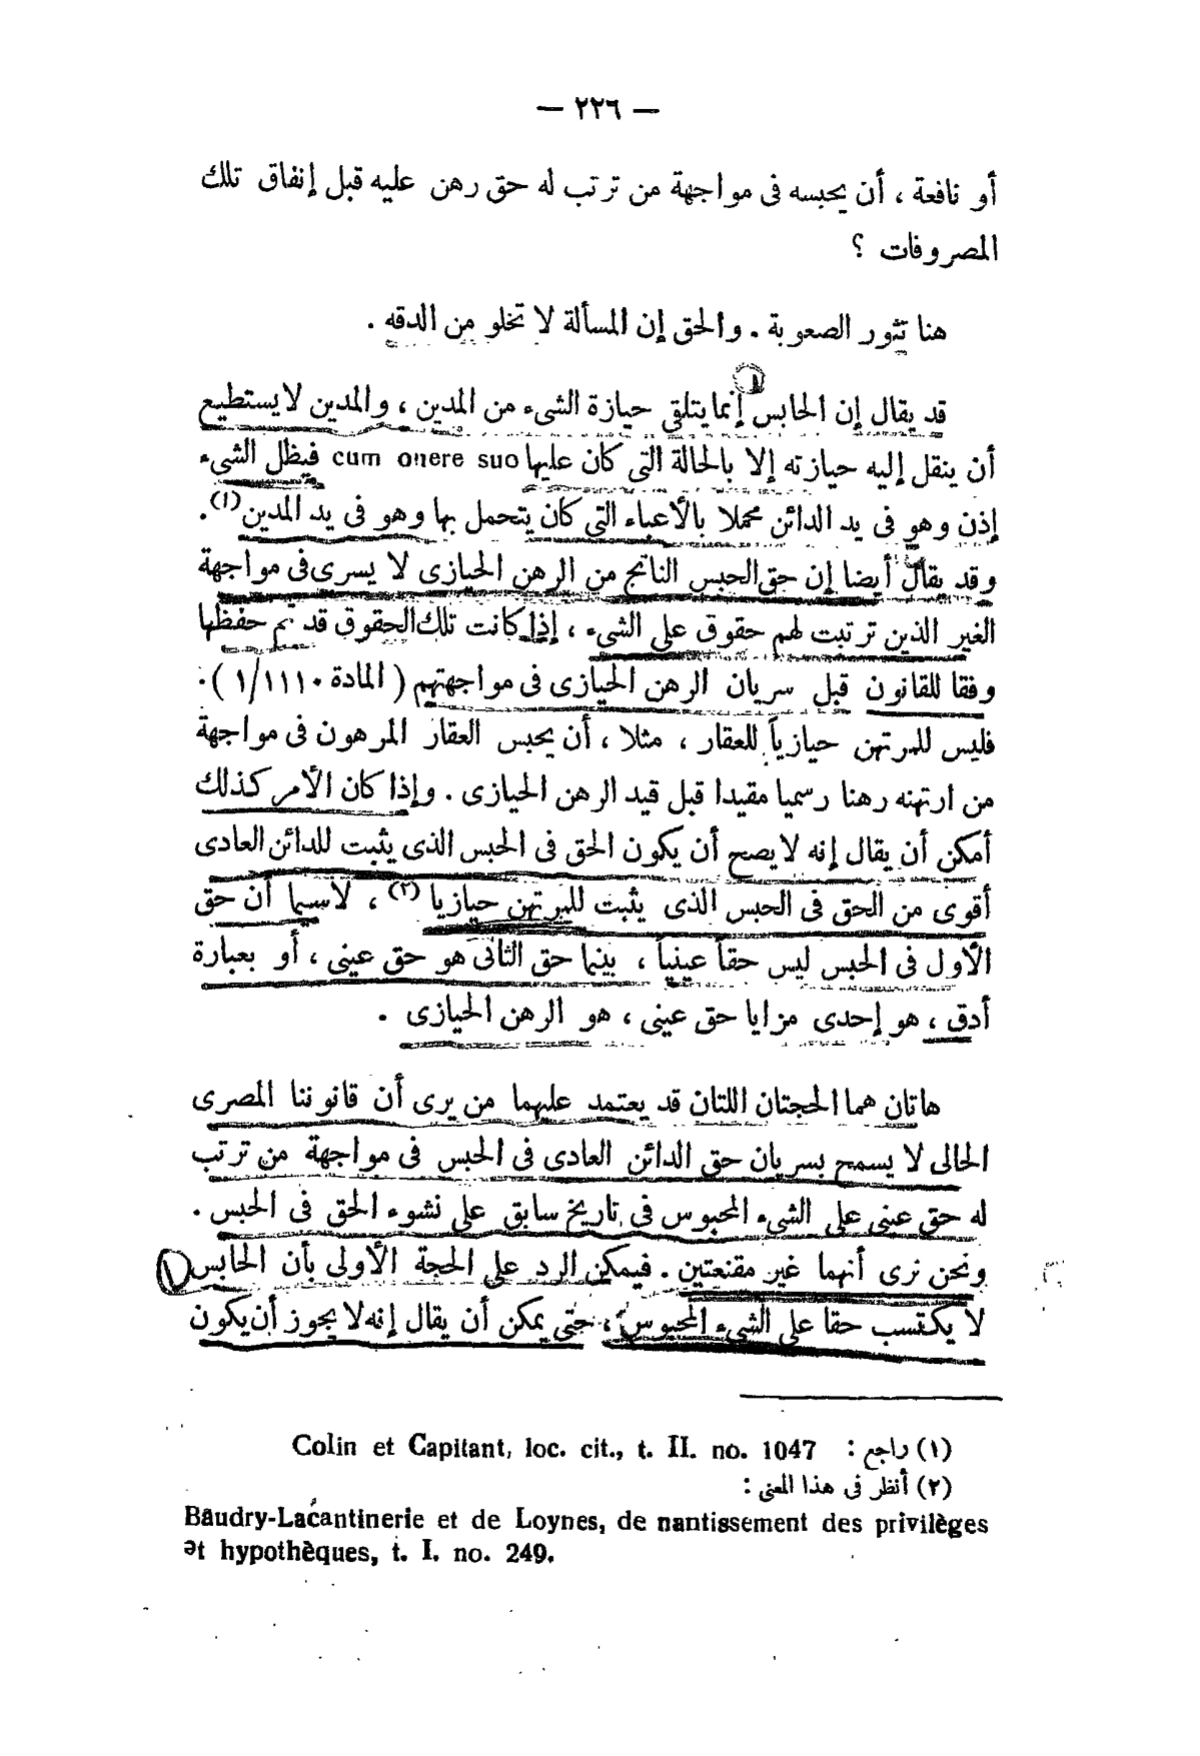 — ٢٢٦ —
أو نافعة ، أن يحبسه فى مواجهة من ترتب له حق رهن عليه قبل إنفاق تلك
المصروفات ؟
هنا تثور الصعوبة . والحق إن المسألة لا تخلو من الدقه .
قد يقال إن الحابس إنما يتلقى حيازة الشىء من المدين ، والمدين لا يستطيع
أن ينقل إليه حيازته إلا بالحالة التى كان عليها cum onere suo فيظل الشىء
إذن وهو فى يد الدائن محملا بالأعباء التى كان يتحمل بها وهو فى يد المدين (١) .
وقد يقال أيضا إن حق الحبس الناتج من الرهن الحيازى لا يسرى فى مواجهة
الغير الذين ترتبت لهم حقوق على الشىء ، إذا كانت تلك الحقوق قد تم حفظها
وفقا للقانون قبل سريان الرهن الحيازى فى مواجهتهم ( المادة ١/١١١٠ ) .
فليس للمرتهن حيازياً للعقار ، مثلا ، أن يحبس العقار المرهون فى مواجهة
من ارتهنه رهنا رسميا مقيدا قبل قيد الرهن الحيازى . وإذا كان الأمر كذلك
أمكن أن يقال إنه لا يصح أن يكون الحق فى الحبس الذى يثبت للدائن العادى
أقوى من الحق فى الحبس الذى يثبت للمرتهن حيازيا (٢) ، لا سيما أن حق
الأول فى الحبس ليس حقاً عينياً ، بينما حق الثانى هو حق عينى ، أو بعبارة
أدق ، هو إحدى مزايا حق عينى ، هو الرهن الحيازى .
هاتان هما الحجتان اللتان قد يعتمد عليهما من يرى أن قانوننا المصرى
الحالى لا يسمح بسريان حق الدائن العادى فى الحبس فى مواجهة من ترتب
له حق عينى على الشىء المحبوس فى تاريخ سابق على نشوء الحق فى الحبس .
ونحن نرى أنهما غير مقنعتين . فيمكن الرد على الحجة الأولى بأن الحابس
لا يكتسب حقا على الشىء المحبوس ، حتى يمكن أن يقال إنه لا يجوز أن يكون
(١) راجع : Colin et Capitant, loc. cit., t. II. no. 1047
(٢) أنظر فى هذا المعنى :
Baudry-Lacantinerie et de Loynes, de nantissement des privilèges
et hypothèques, t. I. no. 249.